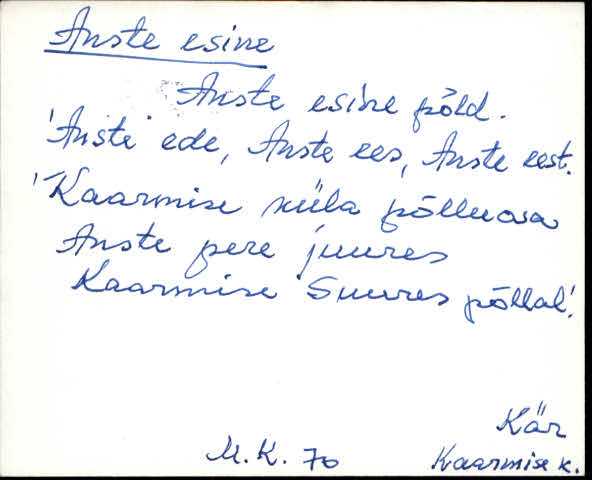 Anste esine
Anste esine põld.
'Anste ede, Anste ees, Anste eest.
'Kaarmise küla põlluosa
Anste pere juures
Kaarmise Suures põllal'.
Kär
M.K. 70 Kaarmise k.